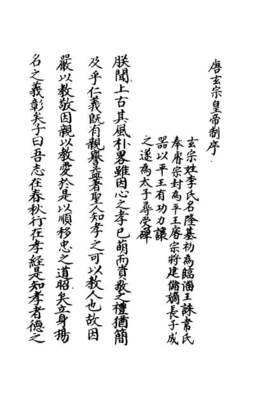 唐玄宗皇帝制序
玄宗姓李氏名隆基初為臨淄王誅韋氏
奉睿宗封為平王睿宗將建儲嫡長子成
器以平王有功力讓
之遂為太子尋受禪
朕聞上古其風朴畧雖因心之孝已萌而資敬之禮猶簡
及乎仁義既有親譽益著聖人知孝之可以教人也故因
嚴以教敬因親以教愛於是以順移忠之道昭矣立身揚
名之義彰矣子曰吾志在春秋行在孝經是知孝者德之